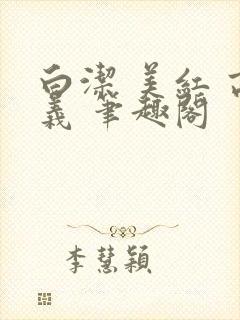 白潔 美红
義 筆趣閣
李慧穎